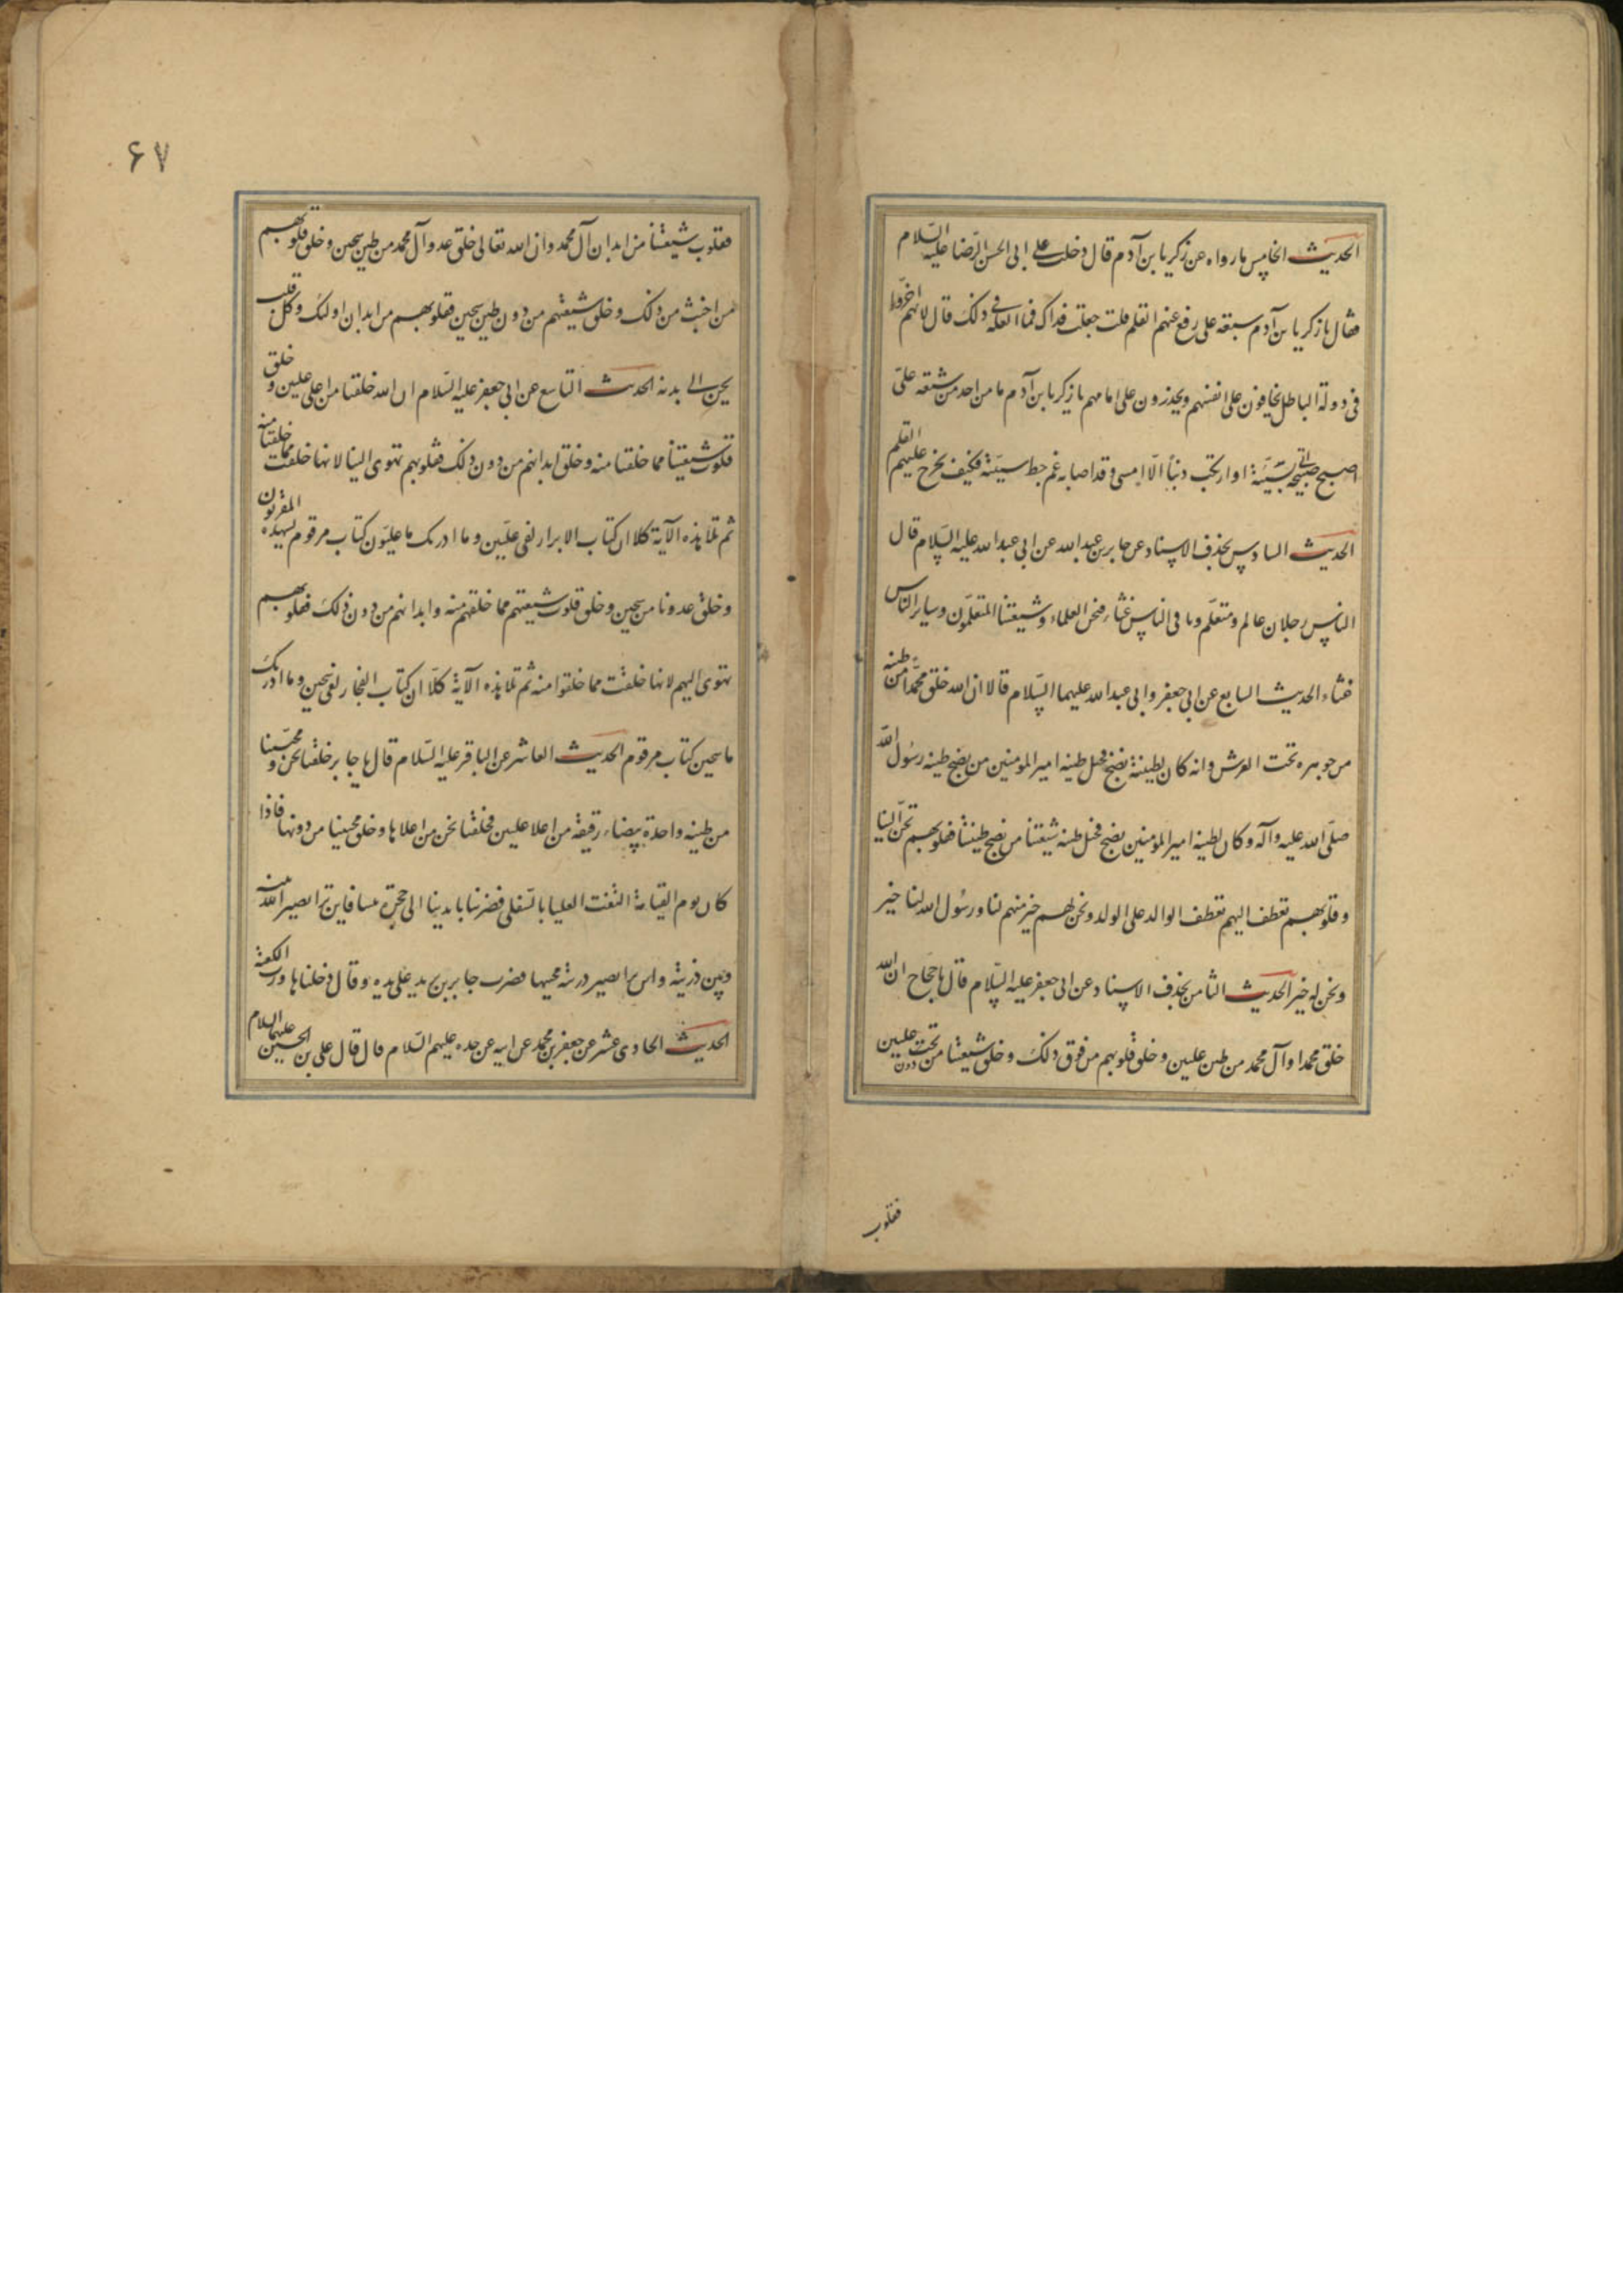 الحدیث الخامس ما رواه عن زکریا بن آدم قال دخلت علی ابی الحسن الرّضا علیه السّلام
فقال یا زکریا بن آدم شیعة علی رفع عنهم القلم قلت جعلت فداک فما العلة فی ذلک قال لانهم اخّروا
فی دولة الباطل یخافون علی انفسهم ویحذرون علی امامهم یا زکریا بن آدم ما من احد من شیعة علیّ
اصبح صبیحة اتی بسیّئة او ارتکب ذنباً الّا امسی وقد اصابه غم حط سیّئة فکیف یخرج علیهم القلم
الحدیث السادس بحذف الاسناد عن جابر بن عبد الله عن ابی عبد الله علیه السّلام قال
الناس رجلان عالم ومتعلّم وما فی الناس غثاء فنحن العلماء وشیعتنا المتعلّمون وسایر النّاس
غثاء الحدیث السابع عن ابی جعفر وابی عبد الله علیهما السّلام قالا ان الله خلق محمّدا من طینه
من جوهره تحت العرش وانه کان لطینة نضح فجبل طینه امیر المومنین من نضح طینه رسول الله
صلّی الله علیه وآله وکان لطینه امیر المومنین نضح فجبل طینه شیعتنا من نضح طینتنا فقلوبهم تحنّ الینا
وقلوبهم تعطف الیهم تعطف الوالد علی الولد ونحن لهم خیر منهم لنا ورسول الله لنا خیر
ونحن له خیر الحدیث الثامن بحذف الاسناد عن ابی جعفر علیه السّلام قال یا حجاج ان الله
خلق محمدا وآل محمد من طین علیین وخلق قلوبهم من فوق ذلک وخلق شیعتنا من تحت دون علیین
فقلوب
۶۷
فقلوب شیعتنا من ابدان آل محمد وان الله تعالی خلق عدو آل محمد من طین سجین وخلق قلوبهم
من اخبث من ذلک وخلق شیعتهم من دون طین سجین فقلوبهم من ابدان اولئک وکل قلب
یحن الی بدنه الحدیث التاسع عن ابی جعفر علیه السّلام ان الله خلقنا من اعلی علیین وخلق
قلوب شیعتنا مما خلقنا منه وخلق ابدانهم من دون ذلک فقلوبهم تهوی الینا لانها خلقت مما خلقنا منه
ثم تلا هذه الآیة کلا ان کتاب الابرار لفی علیّین وما ادریک ما علیّون کتاب مرقوم یشهده المقربون
وخلق عدونا من سجین وخلق قلوب شیعتهم مما خلقهم منه وابدانهم من دون ذلک فقلوبهم
تهوی الیهم لانها خلقت مما خلقوا منه ثم تلا هذه الآیة کلّا ان کتاب الفجار لفی سجین وما ادریک
ما سجین کتاب مرقوم الحدیث العاشر عن الباقر علیه السّلام قال یا جابر خلقنا نحن ومحبّینا
من طینه واحدة بیضاء رقیقة من اعلا علیین فخلقنا نحن من اعلاها وخلق محبینا من دونها فاذا
کان یوم القیامة التفت العلیا بالسّفلی فضربنا بایدینا الی حجزة نبینا فاین تری یصیر الله نبیه
وبین ذریته واین تری یصیر ذریته محبیها فضرب جابر بن یزید علی یده وقال دخلناها ورب الکعبة
الحدیث الحادی عشر عن جعفر بن محمد عن ابیه عن جده علیهم السّلام قال قال علی بن الحسین علیهما السلام